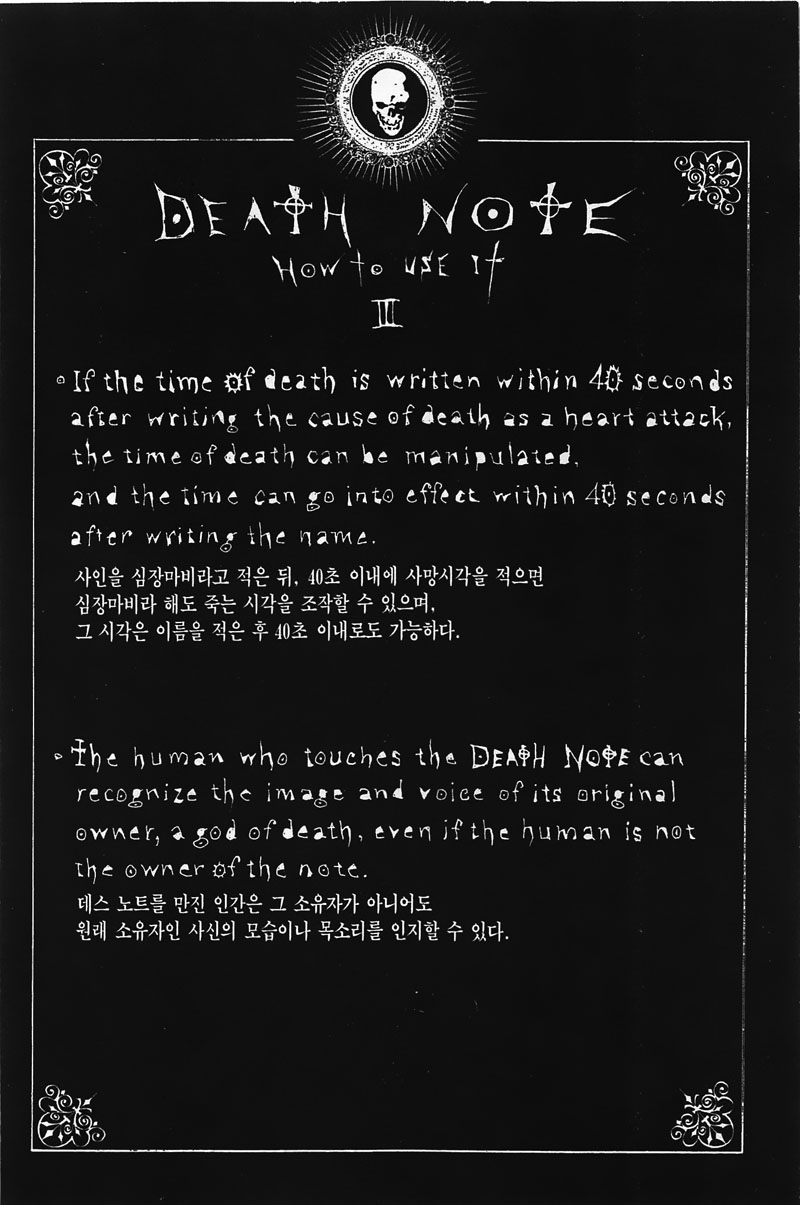 DEATH NOTE
How to use it
III
If the time of death is written within 40 seconds
after writing the cause of death as a heart attack,
the time of death can be manipulated,
and the time can go into effect within 40 seconds
after writing the name.
사인을 심장마비라고 적은 뒤, 40초 이내에 사망시각을 적으면
심장마비라 해도 죽는 시각을 조작할 수 있으며,
그 시각은 이름을 적은 후 40초 이내로도 가능하다.
The human who touches the DEATH NOTE can
recognize the image and voice of its original
owner, a god of death, even if the human is not
the owner of the note.
데스 노트를 만진 인간은 그 소유자가 아니어도
원래 소유자인 사신의 모습이나 목소리를 인지할 수 있다.